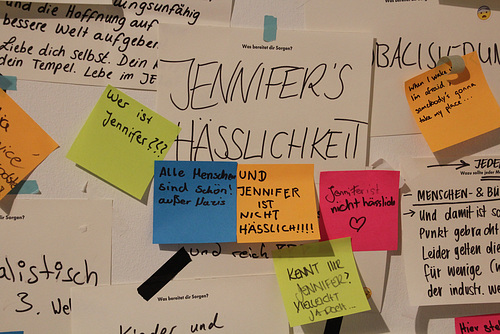 und die Hoffnung auf
bessere Welt aufgeben
Liebe dich selbst. Dein
dein Tempel. Lebe im JE
Was bereitet dir Sorgen?
JENNIFER'S
HÄSSLICHKEIT
BALISIERUN
When I
I'm afraid
somebody's gonna
take my place...
Wer ist
Jennifer???
Alle Menschen
sind schön!
außer Nazis
UND
JENNIFER
IST
NICHT
HÄSSLICH!!!!
Jennifer ist
nicht hässlich
♡
und reich
KENNT IHR
JENNIFER?
VIELLEICHT
JA DOCH...
→ JEDE
MENSCHEN- & BÜ
→ Und damit ist so
Punkt gebracht
Leider gelten die
für wenige
der industr. We
dir Sorgen?
alistisch
3. Wel
Was bereitet dir Sorgen?
Kinder und
Hier